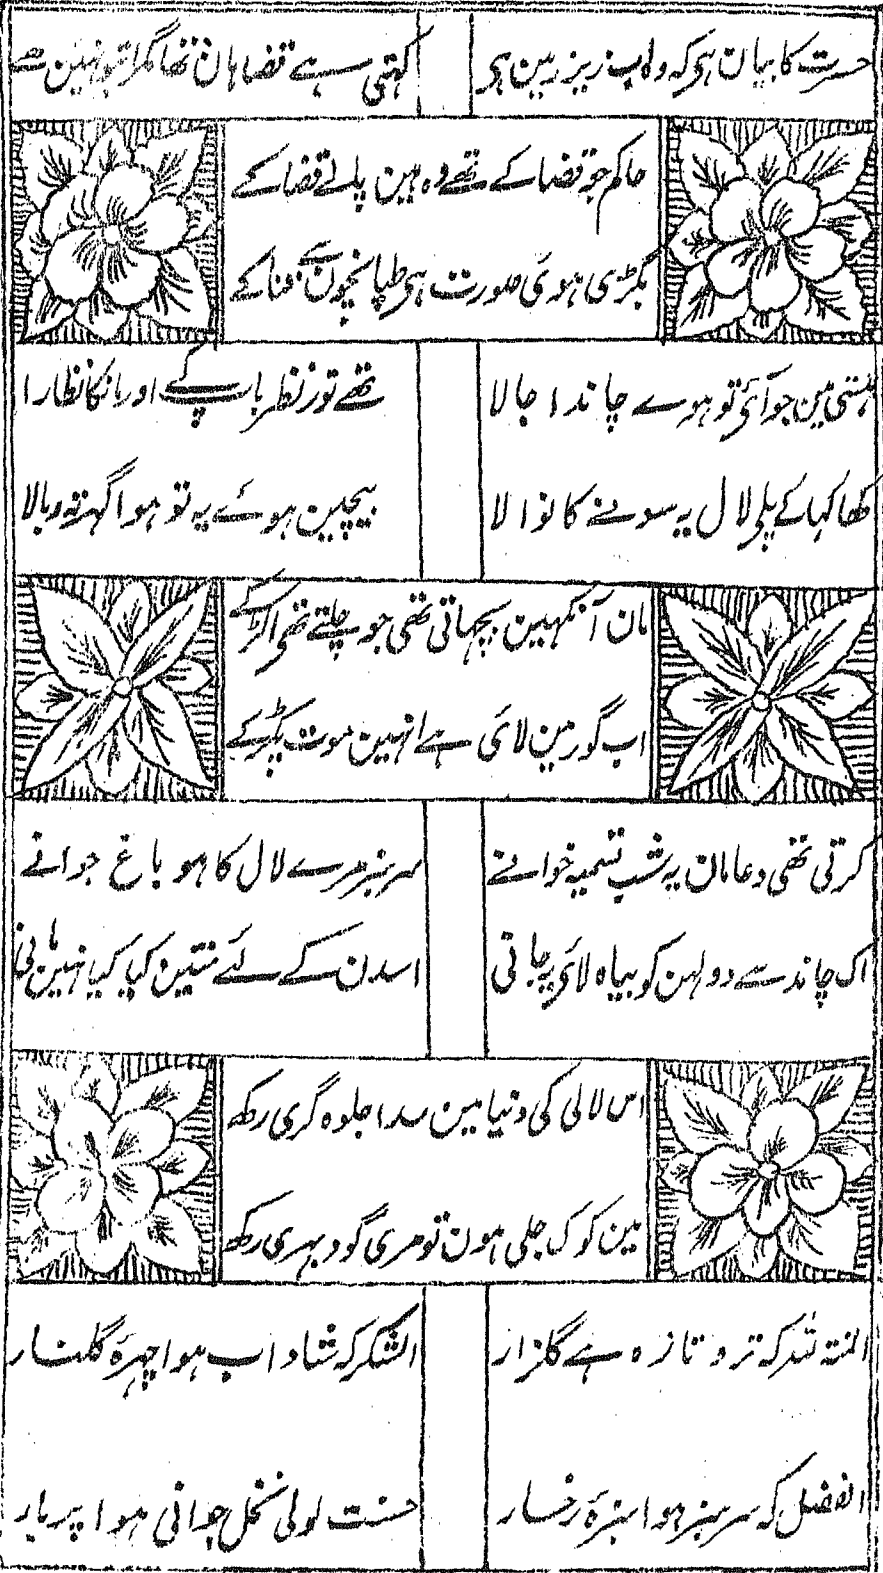 حسرت کا بیان ہی کہ وہ اب زیر زمین ہی
کہتی ہے قضا ہان تھا مگر اب تو نہین ہے
حاکم جو قضا کے تھے وہ ہین پالے قضا کے
بگڑی ہوئی صورت ہی طپانچون سے فنا کے
ہستی مین جو آئے تو ہوے چاند ا جالا
تھے نور نظر باپ کے اور انکا نظارا
کھا کہا کے پلی لال یہ سونے کا نوالا
بیچین ہوئے یہ تو ہوا گہر تہ و بالا
مان آنکہین بچہاتی تھی جو چلتے تھی اکڑ کے
اب گور مین لائی ہے انہین موت پکڑ کے
کرتی تھی دعا مان یہ شب تسمیہ خوانے
سرسبز مرے لال کا ہو باغ جوانے
اک چاند سے دولہن کو بیاہ لائی یہ جانی
اسدن کے لئے منتین کیا کیا نہین مانی
اس لالی کی دنیا مین سدا جلوہ گری رکھ
مین کوک جلی ہون تو مری گود بہری رکھ
المنتہ للہ کہ تر و تازہ ہے گلزار
الشکر کہ شاداب ہوا چہرۂ گلنار
الفضل کہ سرسبز ہوا سبزۂ رخسار
منت لولی نخل جوانی ہوا پر بار